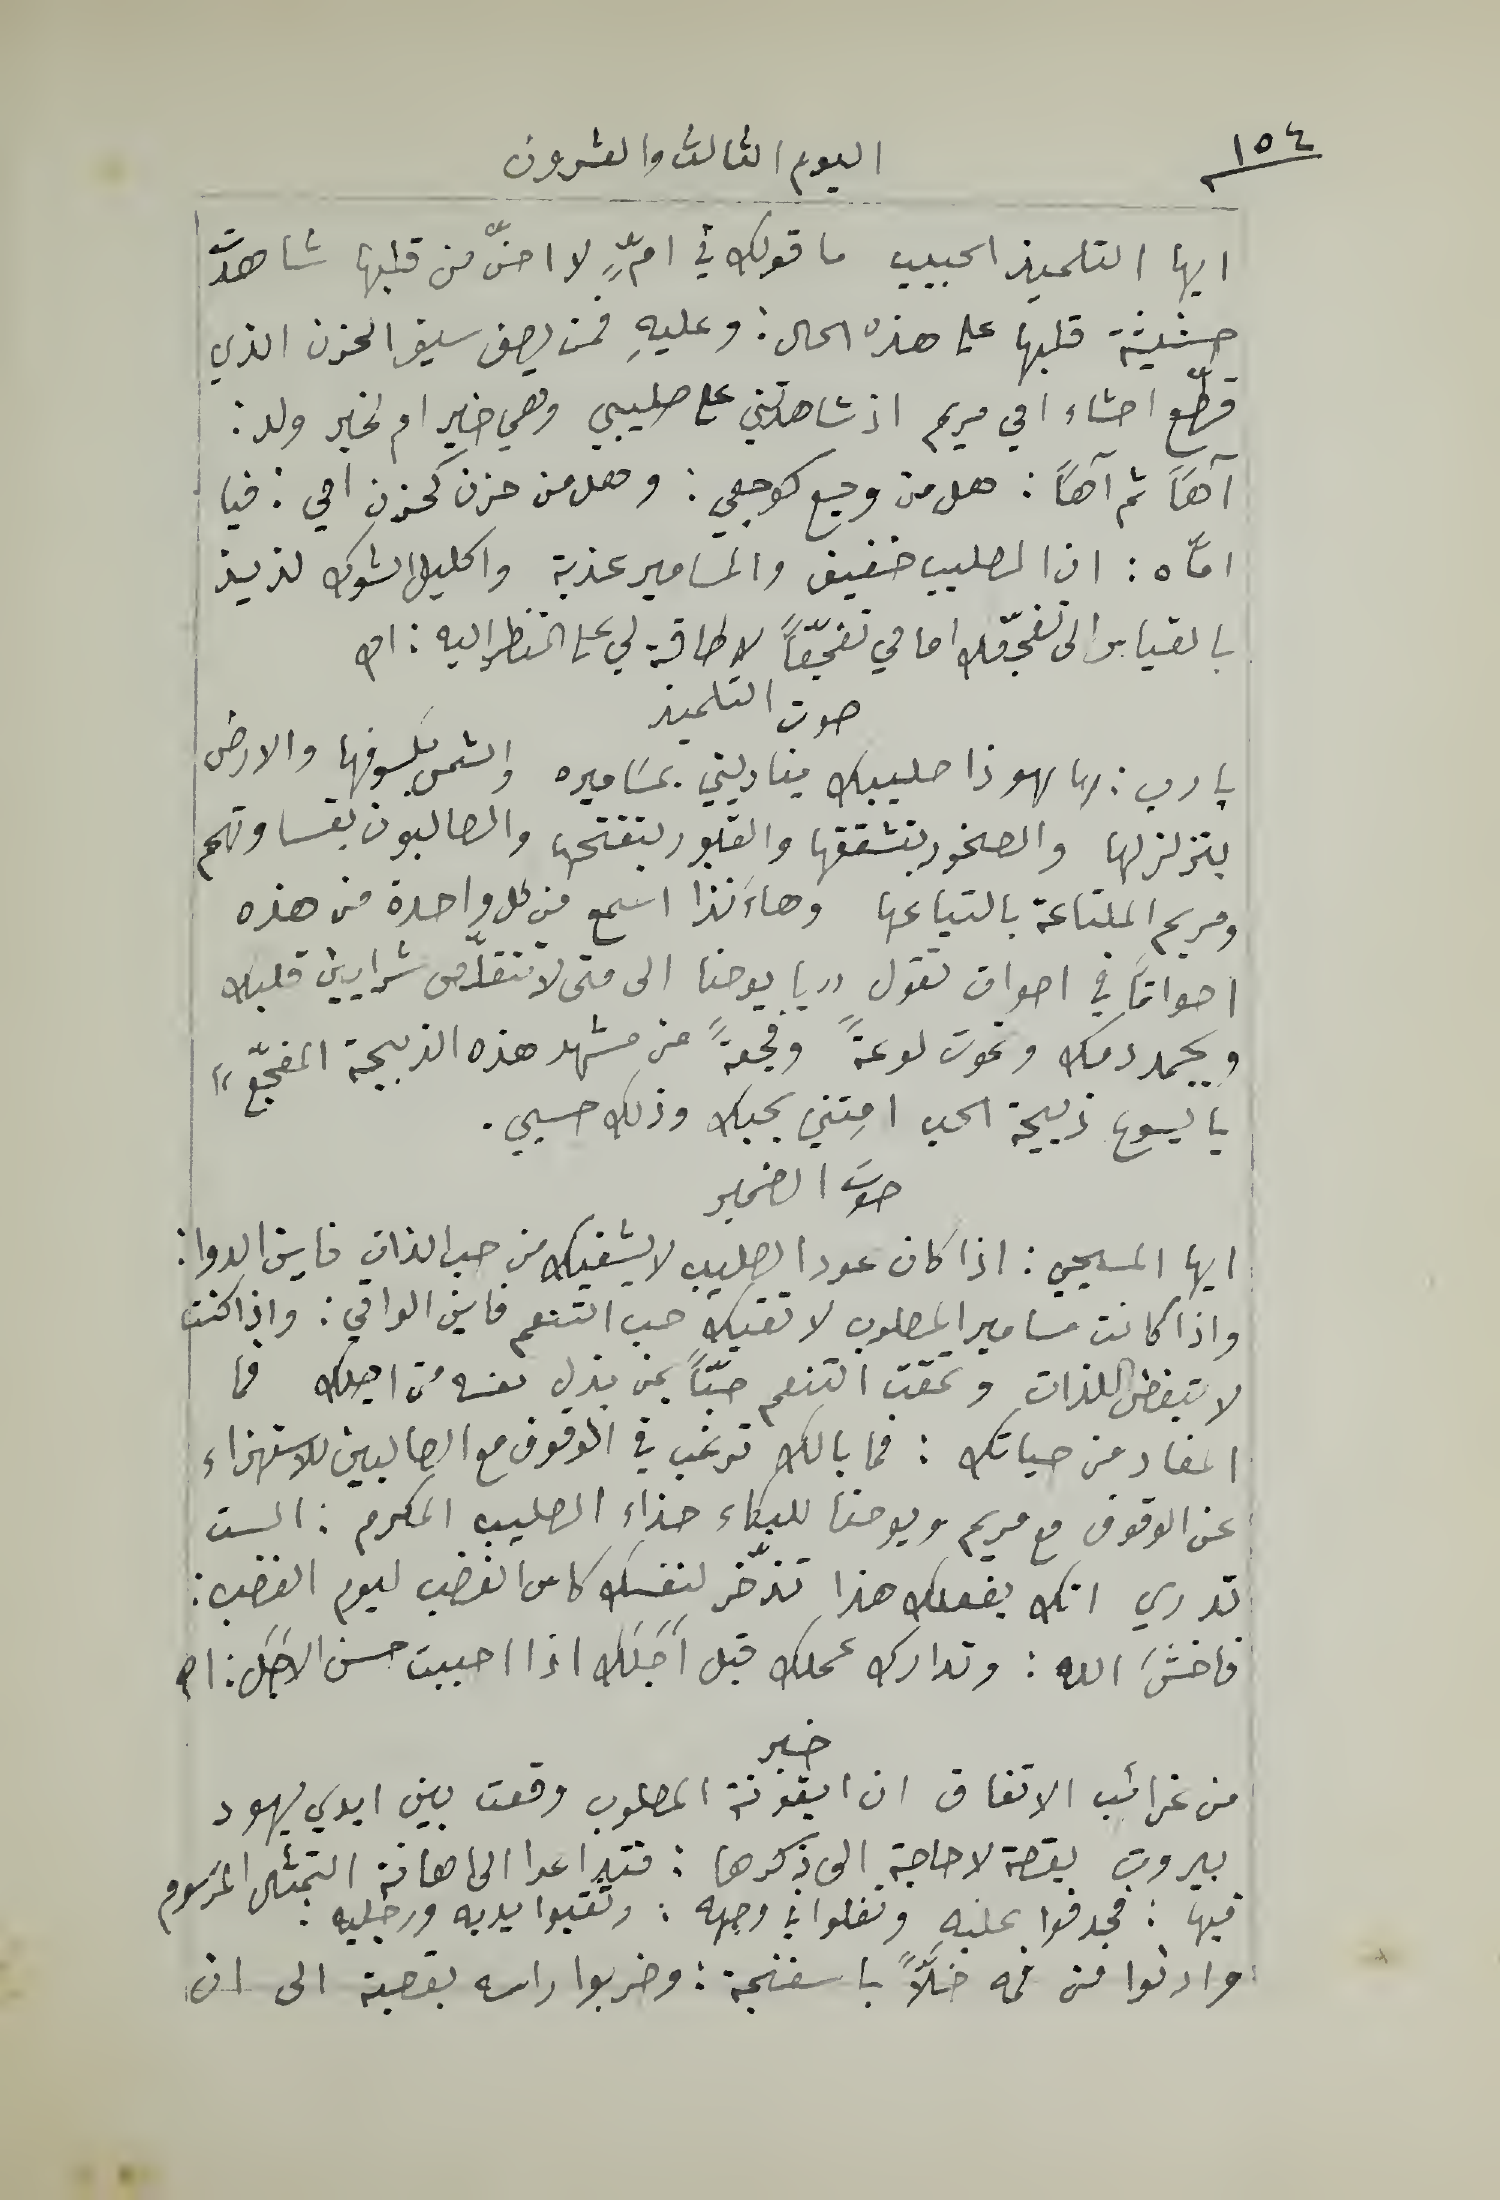 ١٥٤
اليوم الثالث والعشرون
ايها التلميذ الحبيب ما قولك في امٍّ لا احنّ من قلبها شاهدت
حشيشة قلبها على هذه الحال: وعليهِ فمن يصف سيف الحزن الذي
قطّع احشاء امي مريم اذ شاهدتني على صليبي وهي خير ام لخير ولد:
آهاً ثم آهاً: هل من وجع كوجعي: وهل من حزن كحزن امي: فيا
امّاه: ان الصليب خفيف والمسامير عذبة واكليل الشوك لذيذ
بالقياس الى تفجّعك امامي تفجّعاً لا طاقة لي على النظر اليه: اه
صوت التلميذ
يا رب: ها هوذا صليبك يناديني بمساميره والشمس بكسوفها والارض
بتزلزلها والصخور بتشققها والقبور بتفتحها والصالبون بقساوتهم
ومريم الملتاعة بالتياعها وهاءَنذا اسمع من كل واحدة من هذه
اصواتاً في اصوات تقول "يا يوحنا الى متى لا تتقلّص شرايين قلبك
ويجمد دمك وتموت لوعةً وفجعةً من مشهد هذه الذبيحة المفجّع"
يا يسوع ذبيحة الحب امِتني بحبك وذلك حسبي.
صوت الضمير
ايها المسيحي: اذا كان عود الصليب لا يشفيك من حب الذات فاين الدوا:
واذا كانت مسامير المصلوب لا تقيك حب التنعم فاين الواقي: واذا كنت
لا تبغض اللذات وتمقت التنعم حبّاً بمن بذل نفسه من اجلك فما
المفاد من حياتك: فما بالك ترغب في الوقوف مع الصالبين للاستهزاء
عن الوقوف مع مريم ويوحنا للبكاء حذاء الصليب المكرم: الست
تدري انك بفعلك هذا تذّخر لنفسك كاس الغضب ليوم الغضب:
فاخشَ الله: وتدارك عملك قبل اَجَلك اذا احببت حسن الاجَل: اه
خبر
من غرائب الاتفاق ان ايقونة المصلوب وقعت بين ايدي يهود
بيروت بقصة لا حاجة الى ذكرها: فتداعوا الى اهانة التمثال المرسوم
فيها: فجدفوا عليه وتفلوا في وجهه: وثقبوا يديه ورجليه:
وادنوا من فمه خلّاً باسفنجة: وضربوا راسه بقصبة الى ان